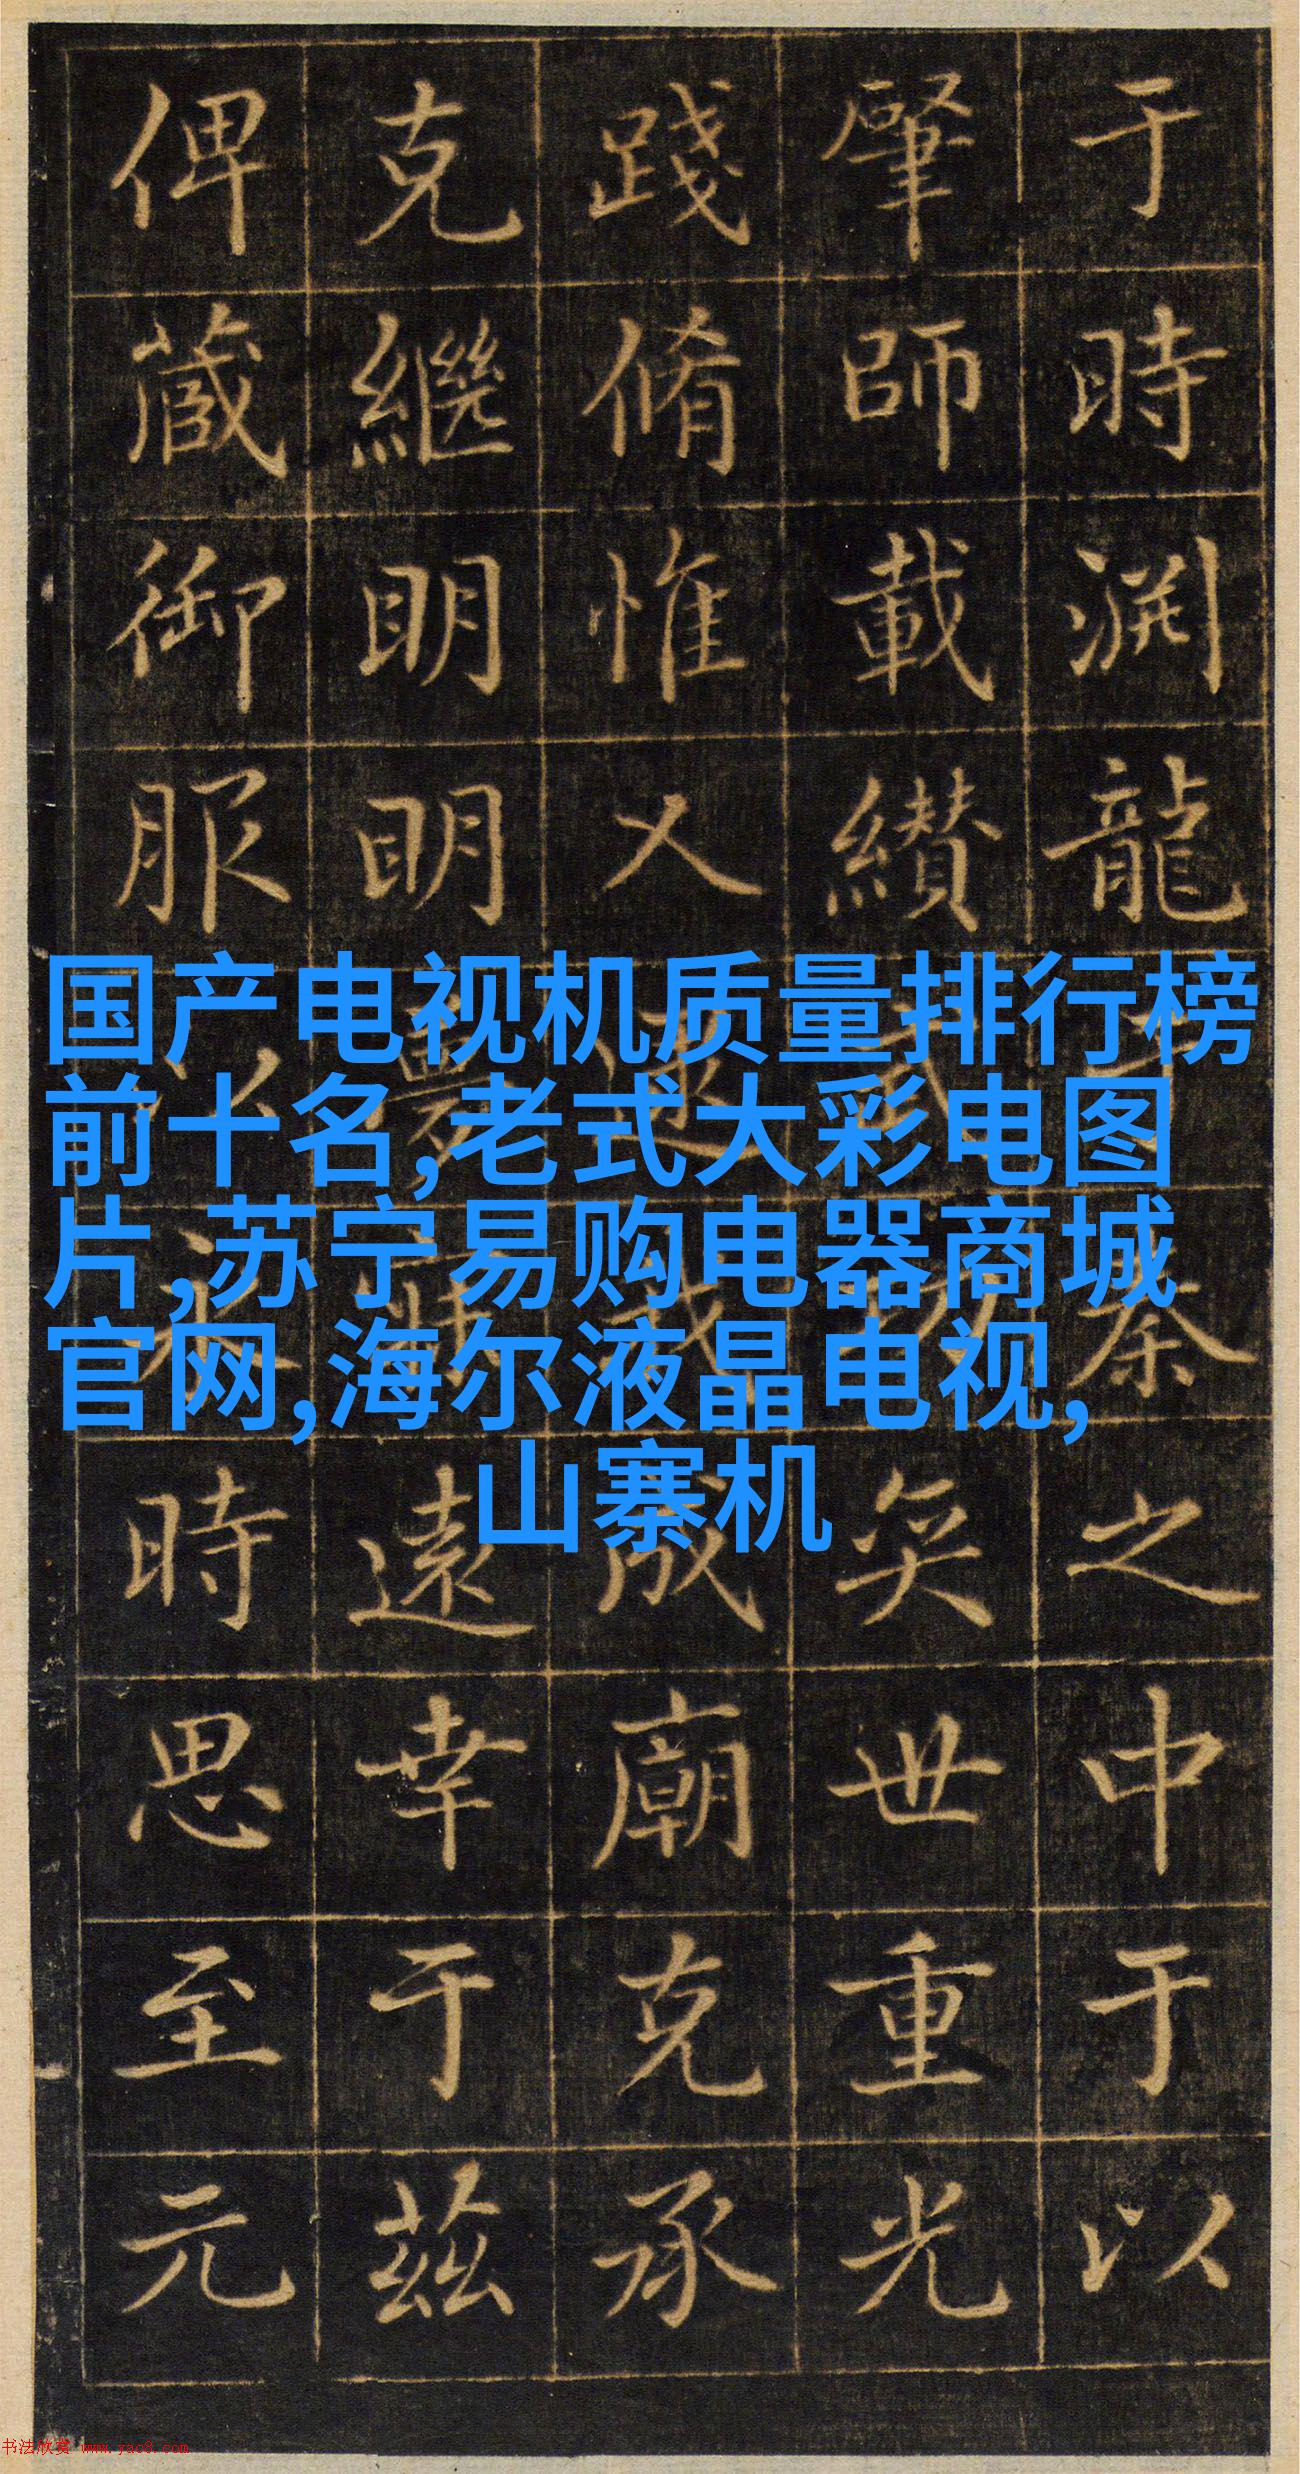 于時渕龍秦之中于以
肇師載纘武功奕世重光
踐脩惟乂逮我成廟克承
克繼明明遠幸于兹
俾蕆御服以永時思至元
国产电视机质量排行榜
前十名,老式大彩电图
片,苏宁易购电器商城
官网,海尔液晶电视,
山寨机
书法欣赏 www.yac8.com